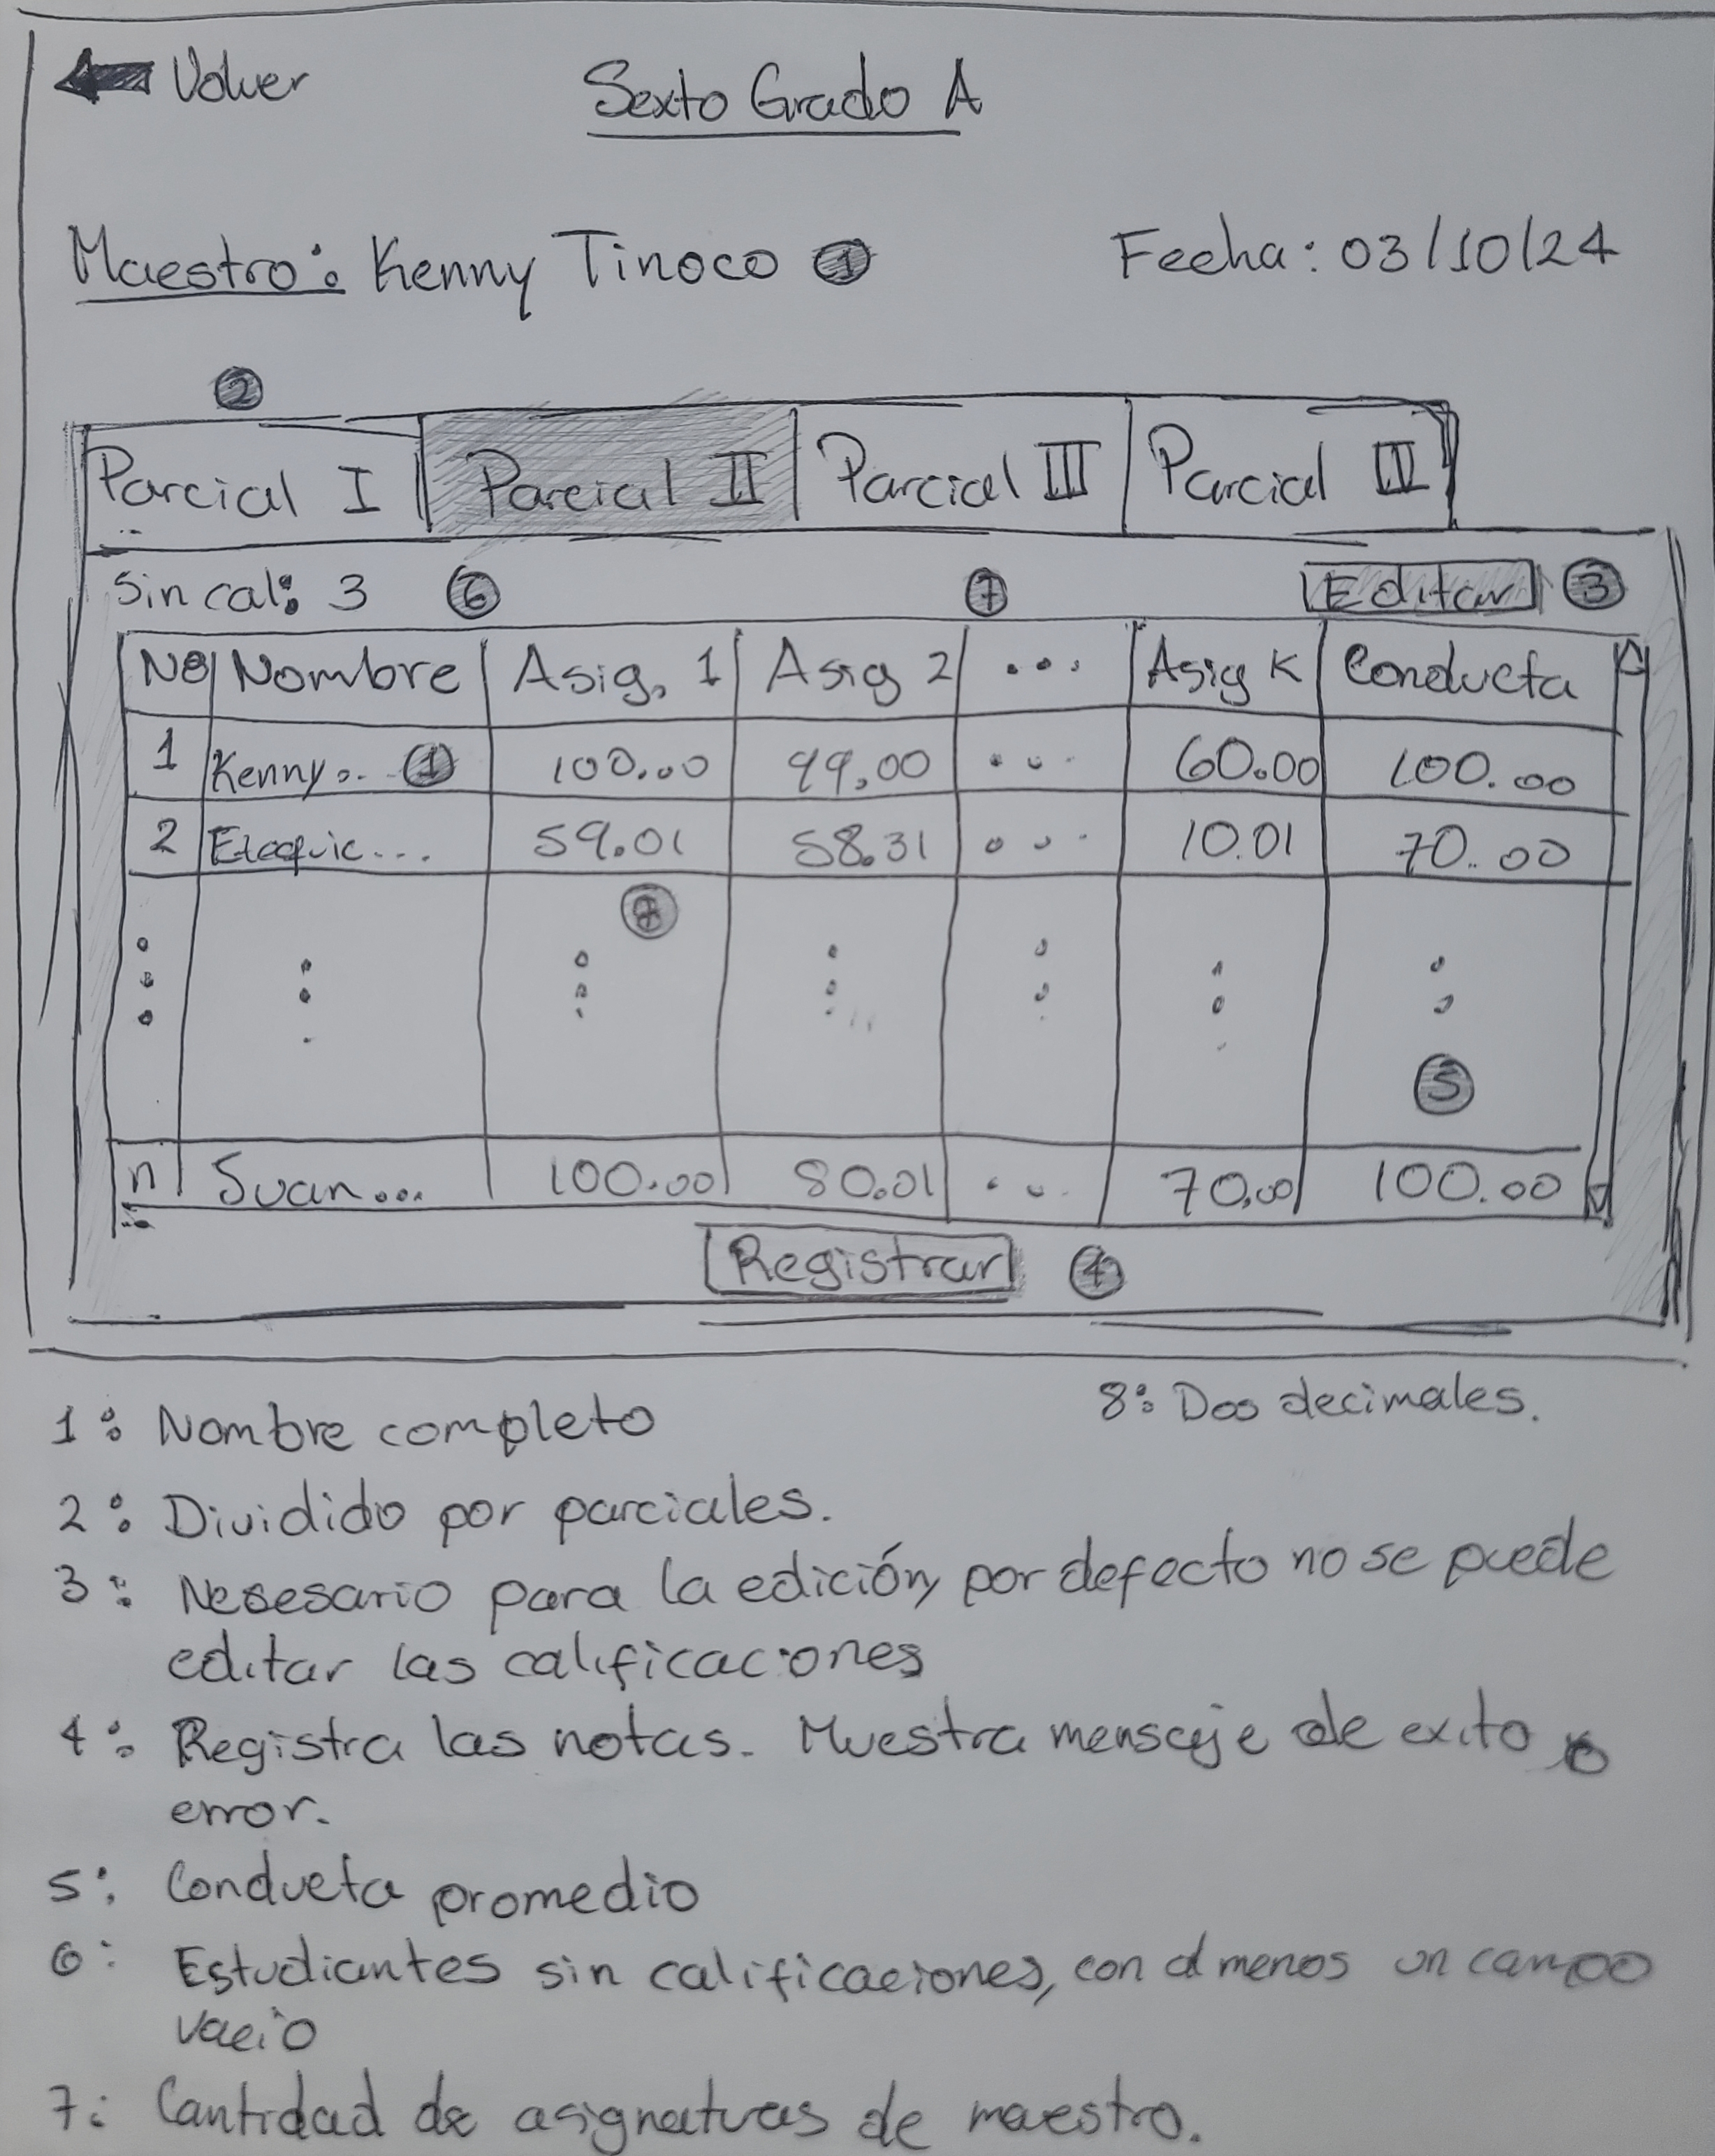 Volver
Sexto Grado A
Maestro: Kenny Tinoco 1
Fecha: 03/10/24
2
Parcial I Parcial II Parcial III Parcial
Sin cal: 3 6 7 Editar 3
Nº Nombre Asig. 1 Asig 2 ... Asig K Conducta
1 Kenny... 1 100.00 99.00 ... 60.00 100.00
2 59.01 58.31 ... 10.01 70.00
5
n Juan... 100.00 80.01 ... 70.00 100.00
Registrar 4
1: Nombre completo
8: Dos decimales.
2: Dividido por parciales.
3: Nesesario para la edición, por defecto no se puede
editar las calificaciones
4: Registra las notas. Muestra mensaje de exito o
error.
5: Conducta promedio
6: Estudiantes sin calificaciones, con al menos un campo
vacio
7: Cantidad de asignaturas de maestro.